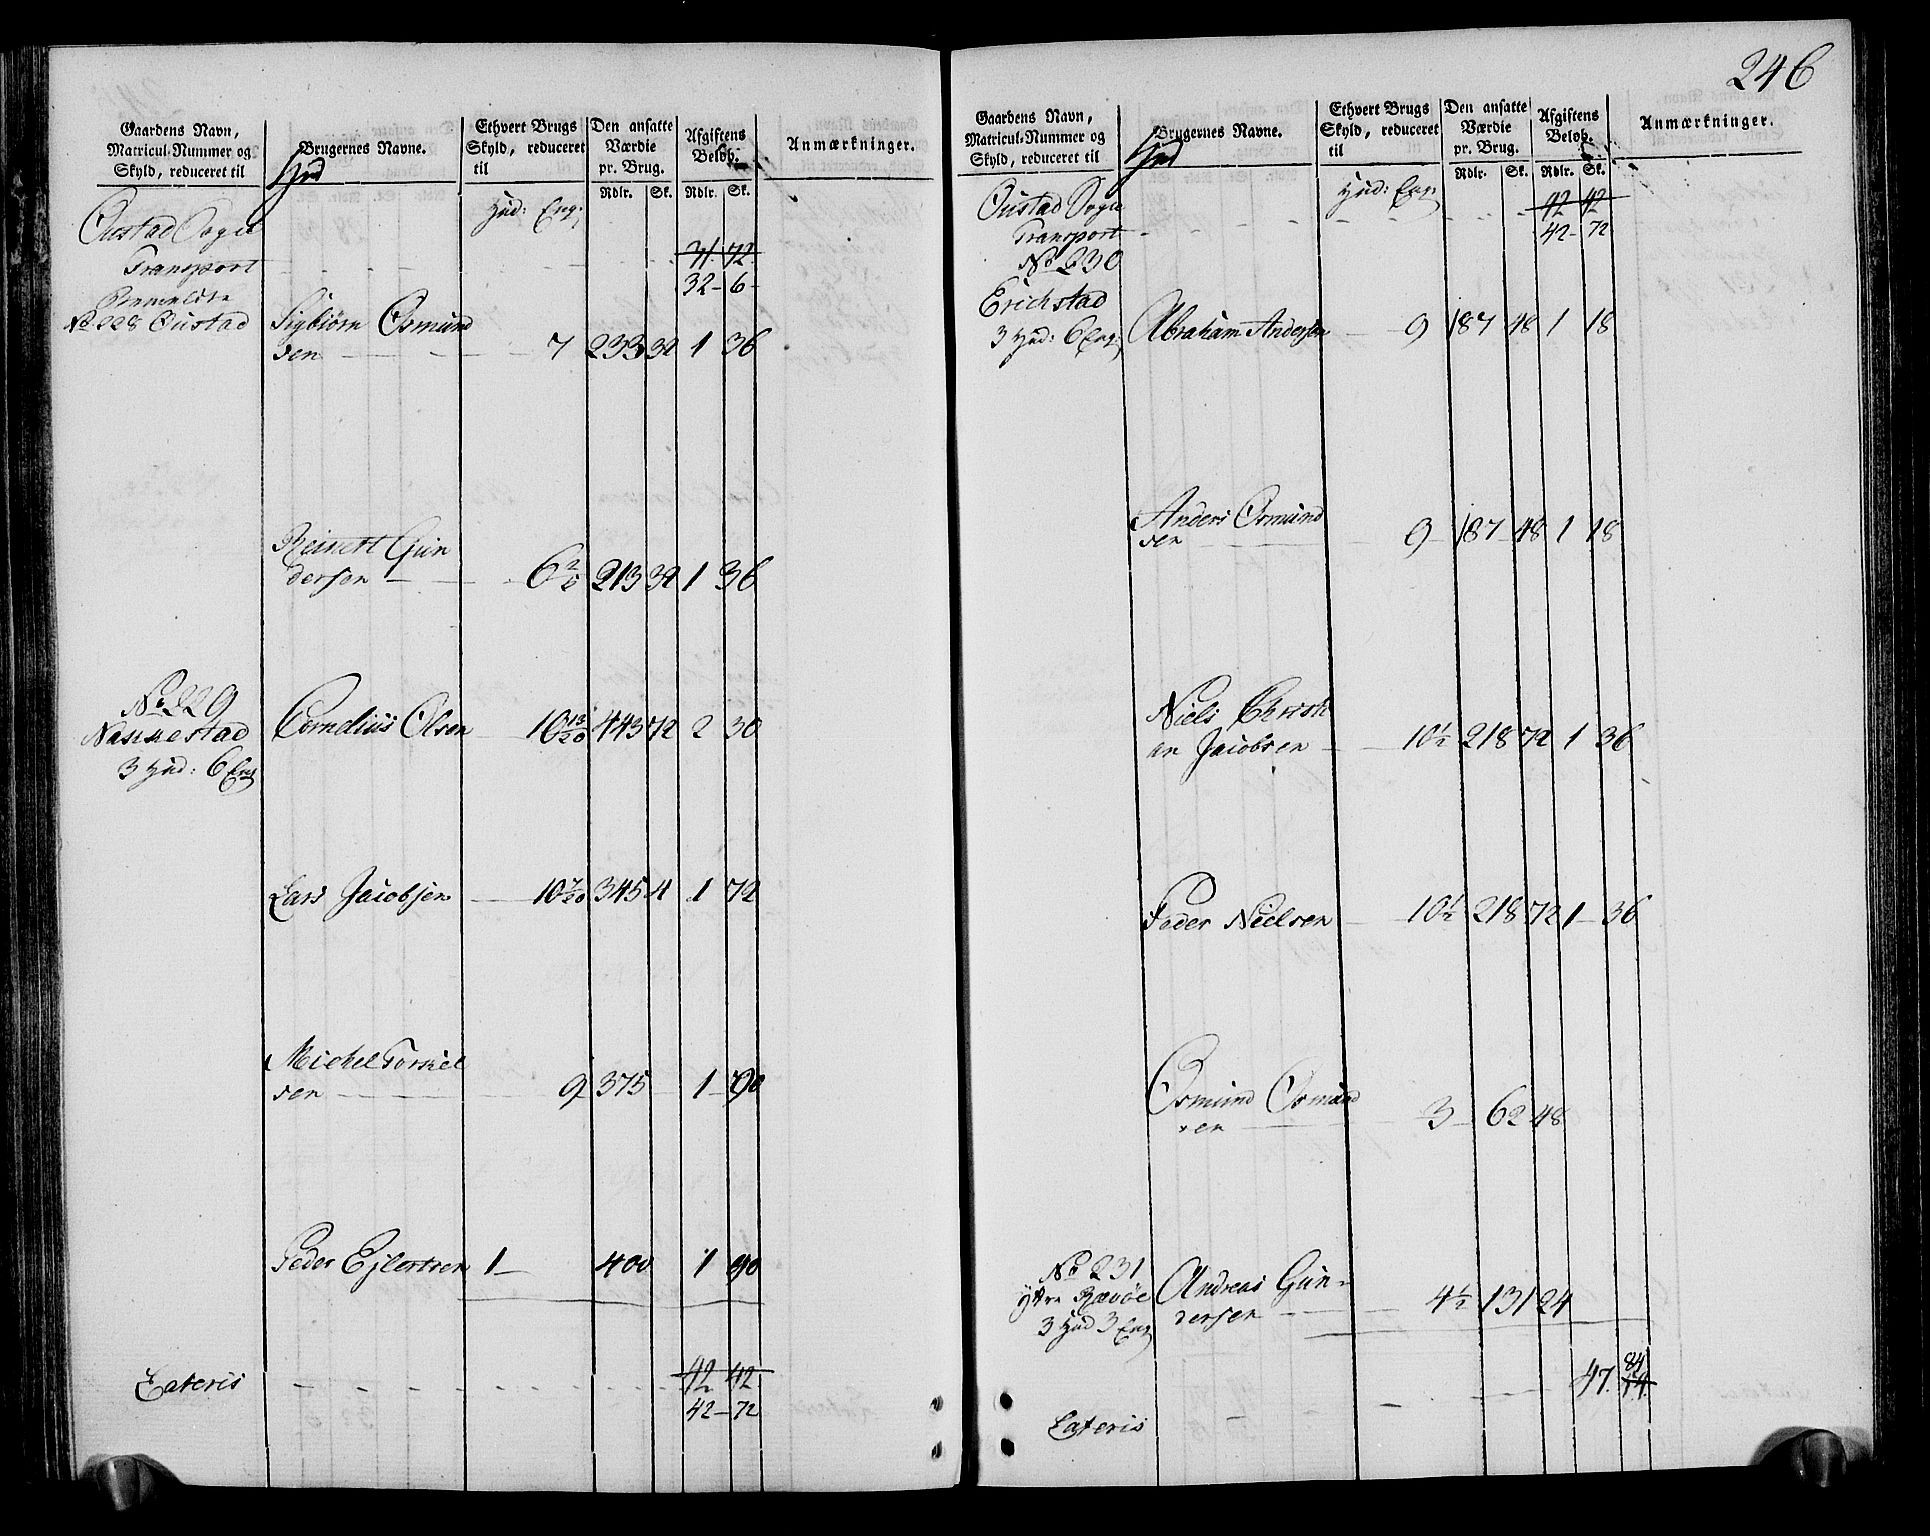 Gaardens Navn,
Matricul-Nummer og
Skyld, reduceret til
Brugernes Navne.
Ethvert Brugs
Skyld, reduceret
til
Den ansatte
Værdie
pr. Brug.
Rdlr. Sk.
Afgiftens
Beløb.
Rdlr. Sk.
Anmærkninger.
Hud: Eng:
Oustad Sogn
Transport 71. 72.
32 - 6 -
No 228 Oustad Sigbiörn Osmund
sen 7 233 32 1 36
Reinert Gun
dersen 6 2/5 213 32 1 36
No 229
Nannestad Cornelius Olsen 10 13/20 443 72 2 30
3 Hud: 6 Eng
Lars Jacobsen 10 7/20 345 4 1 72
Michel Torkiel
sen 9 375 1 90
Peder Ejlertsen 1 400 1 90
42 42
Lateris
42 - 72
246
Gaardens Navn,
Matricul-Nummer og
Skyld, reduceret til
Brugernes Navne.
Ethvert Brugs
Skyld, reduceret
til
Den ansatte
Værdie
pr. Brug.
Rdlr. Sk.
Afgiftens
Beløb.
Rdlr. Sk.
Anmærkninger.
Hud: Eng:
Oustad Sogn 42 42
Transport 42 - 72
No 230
Erichstad Abraham Andersen 9 187 48 1 18
3 Hud: 6 Eng:
Anders Osmund
sen 9 187 48 1 18
Niels Christi
an Jacobsen 10 1/2 218 72 1 36
Peder Nielsen 10 1/2 218 72 1 36
Osmund Osmund
sen 3 62 48
No 231
Ytre Rævöe Andreas Gun-
3 Hud 3 Eng dersen 4 1/2 131 24
84
47. 14
Lateris